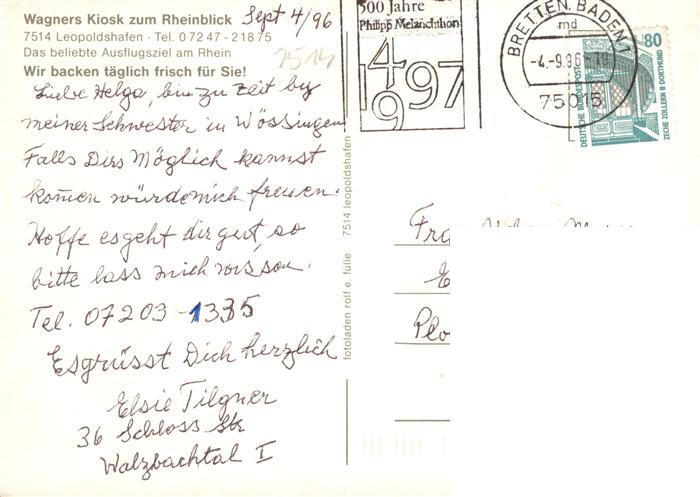 Wagners Kiosk zum Rheinblick
7514 Leopoldshafen · Tel. 0 72 47 - 218 75
Das beliebte Ausflugsziel am Rhein
Wir backen täglich frisch für Sie!
Sept 4/96
7514
Liebe Helga, bin zu Zeit by
meiner Schwester in Wössingen
Falls Dirs Möglich kannst
kom̄en würdemich freuen.
Hoffe esgeht dir gut, so
bitte lass mich
Tel. 07203-1335
Esgrüsst Dich herzlich
Elsie Tilgner
36 Schloss Str
Walzbachtal I
fotoladen rolf e. fülle 7514 leopoldshafen
500 Jahre
Philipp Melanchthon
1497
BRETTEN, BADEN 1
md
-4.-9.96-19
75015
80
DEUTSCHE BUNDESPOST
ZECHE ZOLLERN II DORTMUND
Fra
Plo